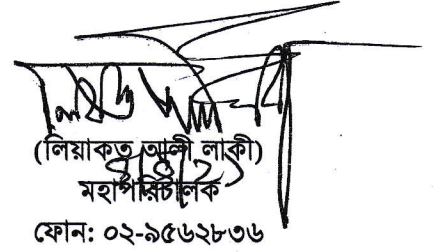 (লিয়াকত আলী লাকী)
মহাপরিচালক
ফোন: ০২-৯৫৬২৮৩৬